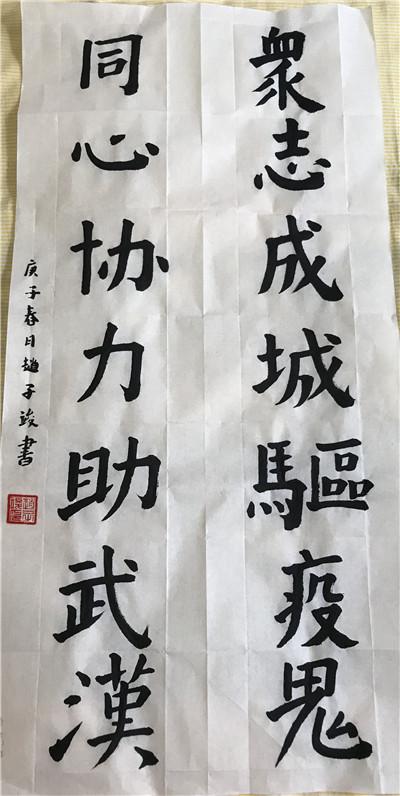 衆志成城驅疫鬼
同心协力助武漢
庚子春日趙子竣書